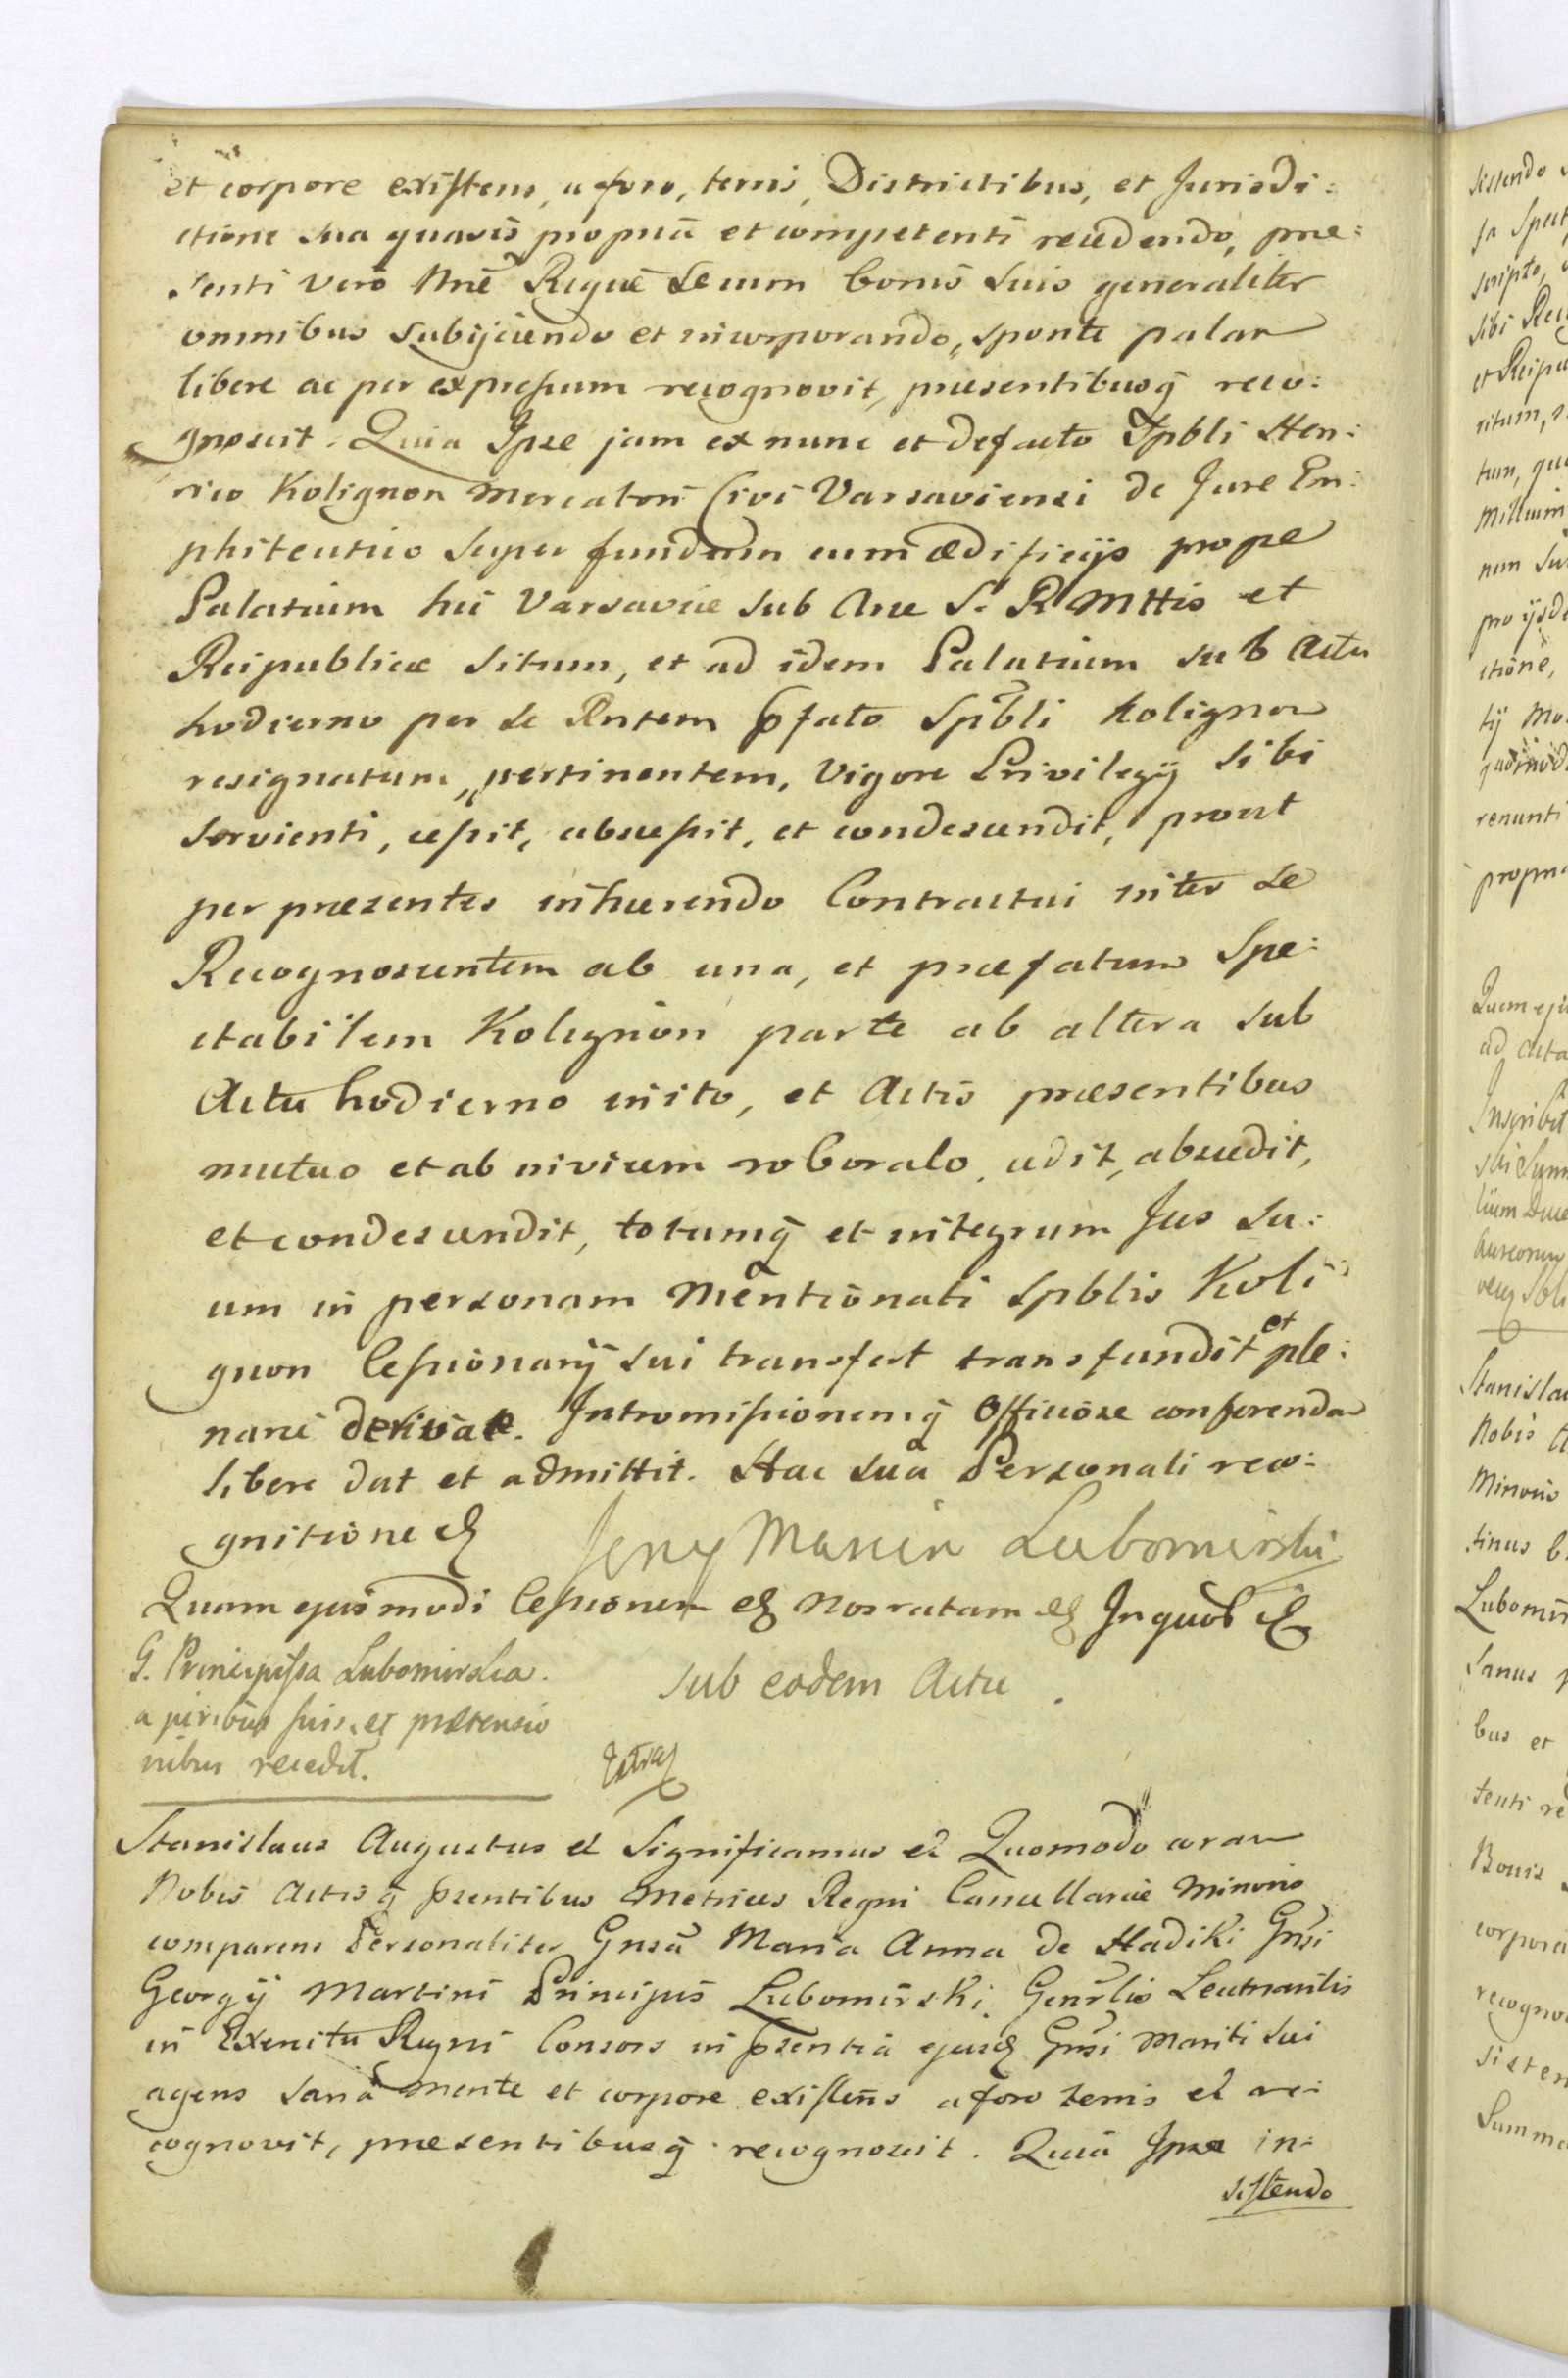 et corpore existens, a foro, terris, Districtibus, et Jurisdi:
ctione sua quavis propria et competenti recedendo, prae:
senti vero Mcae Regnie se cum bonis suis generaliter
omnibus subijciendo et incorporando, sponte palam
libere ac per expressum recognovit, praesentibusq reco:
gnoscit. Quia Ipse jam ex nunc et defacto Spbli Hen:
rico Kolignon Mercatori Civi Varsaviensi de Jure Em:
phiteutico super fundum cum aedificijs prope
Palatium hic Varsaviae sub Arce S. R Mttis et
Reipublicae situm, et ad idem Palatium sub Actu
hodierno per se Rntem pfato Spbli Kolignon
resignatum, pertinentem, Vigore Privilegij sibi
servienti, cessit, abscessit, et condescendit, prout
per praesentes inhaerendo Contractui inter se
Recognoscentem ab una, et praefatum Spe:
ctabilem Kolignon parte ab altera sub
Actu hodierno inito, et Actis praesentibus
mutuo et ab invicem roborato, cedit, abscedit,
et condescendit, totumq et integrum Jus su:
um in personam Mentionati Spblis Koli:
gnon Cessionarij sui transfert transfundit et ple:
narie derivat. Intromissionemq Officiose conferendam
libere dat et admittit. Hac sua Personali reco:
gnitione etc
Jerzy Marcin Lubomirski
Quam ejusmodi Cessionem etc Nos ratam etc In quor etc
G. Principissa Lubomirska.
a juribus suis, et praetensio
nibus recedit.
sub eodem Actu.
Extra
Stanislaus Augustus et Significamus et Quomodo coram
Nobis Actisq psentibus Metrices Regni Cancellariae Minoris
comparens Personaliter Gnsa Maria Anna de Hadiki Gnsi
Georgij Martini Principis Lubomirski, Genrlis Leutnantis
in Exercitu Regni Consors in psentia ejusd Gnsi Mariti sui
agens sana mente et corpore existens a foro terris et re:
cognovit, praesentibusq recognoscit. Quia Ipsa in:
sistendo